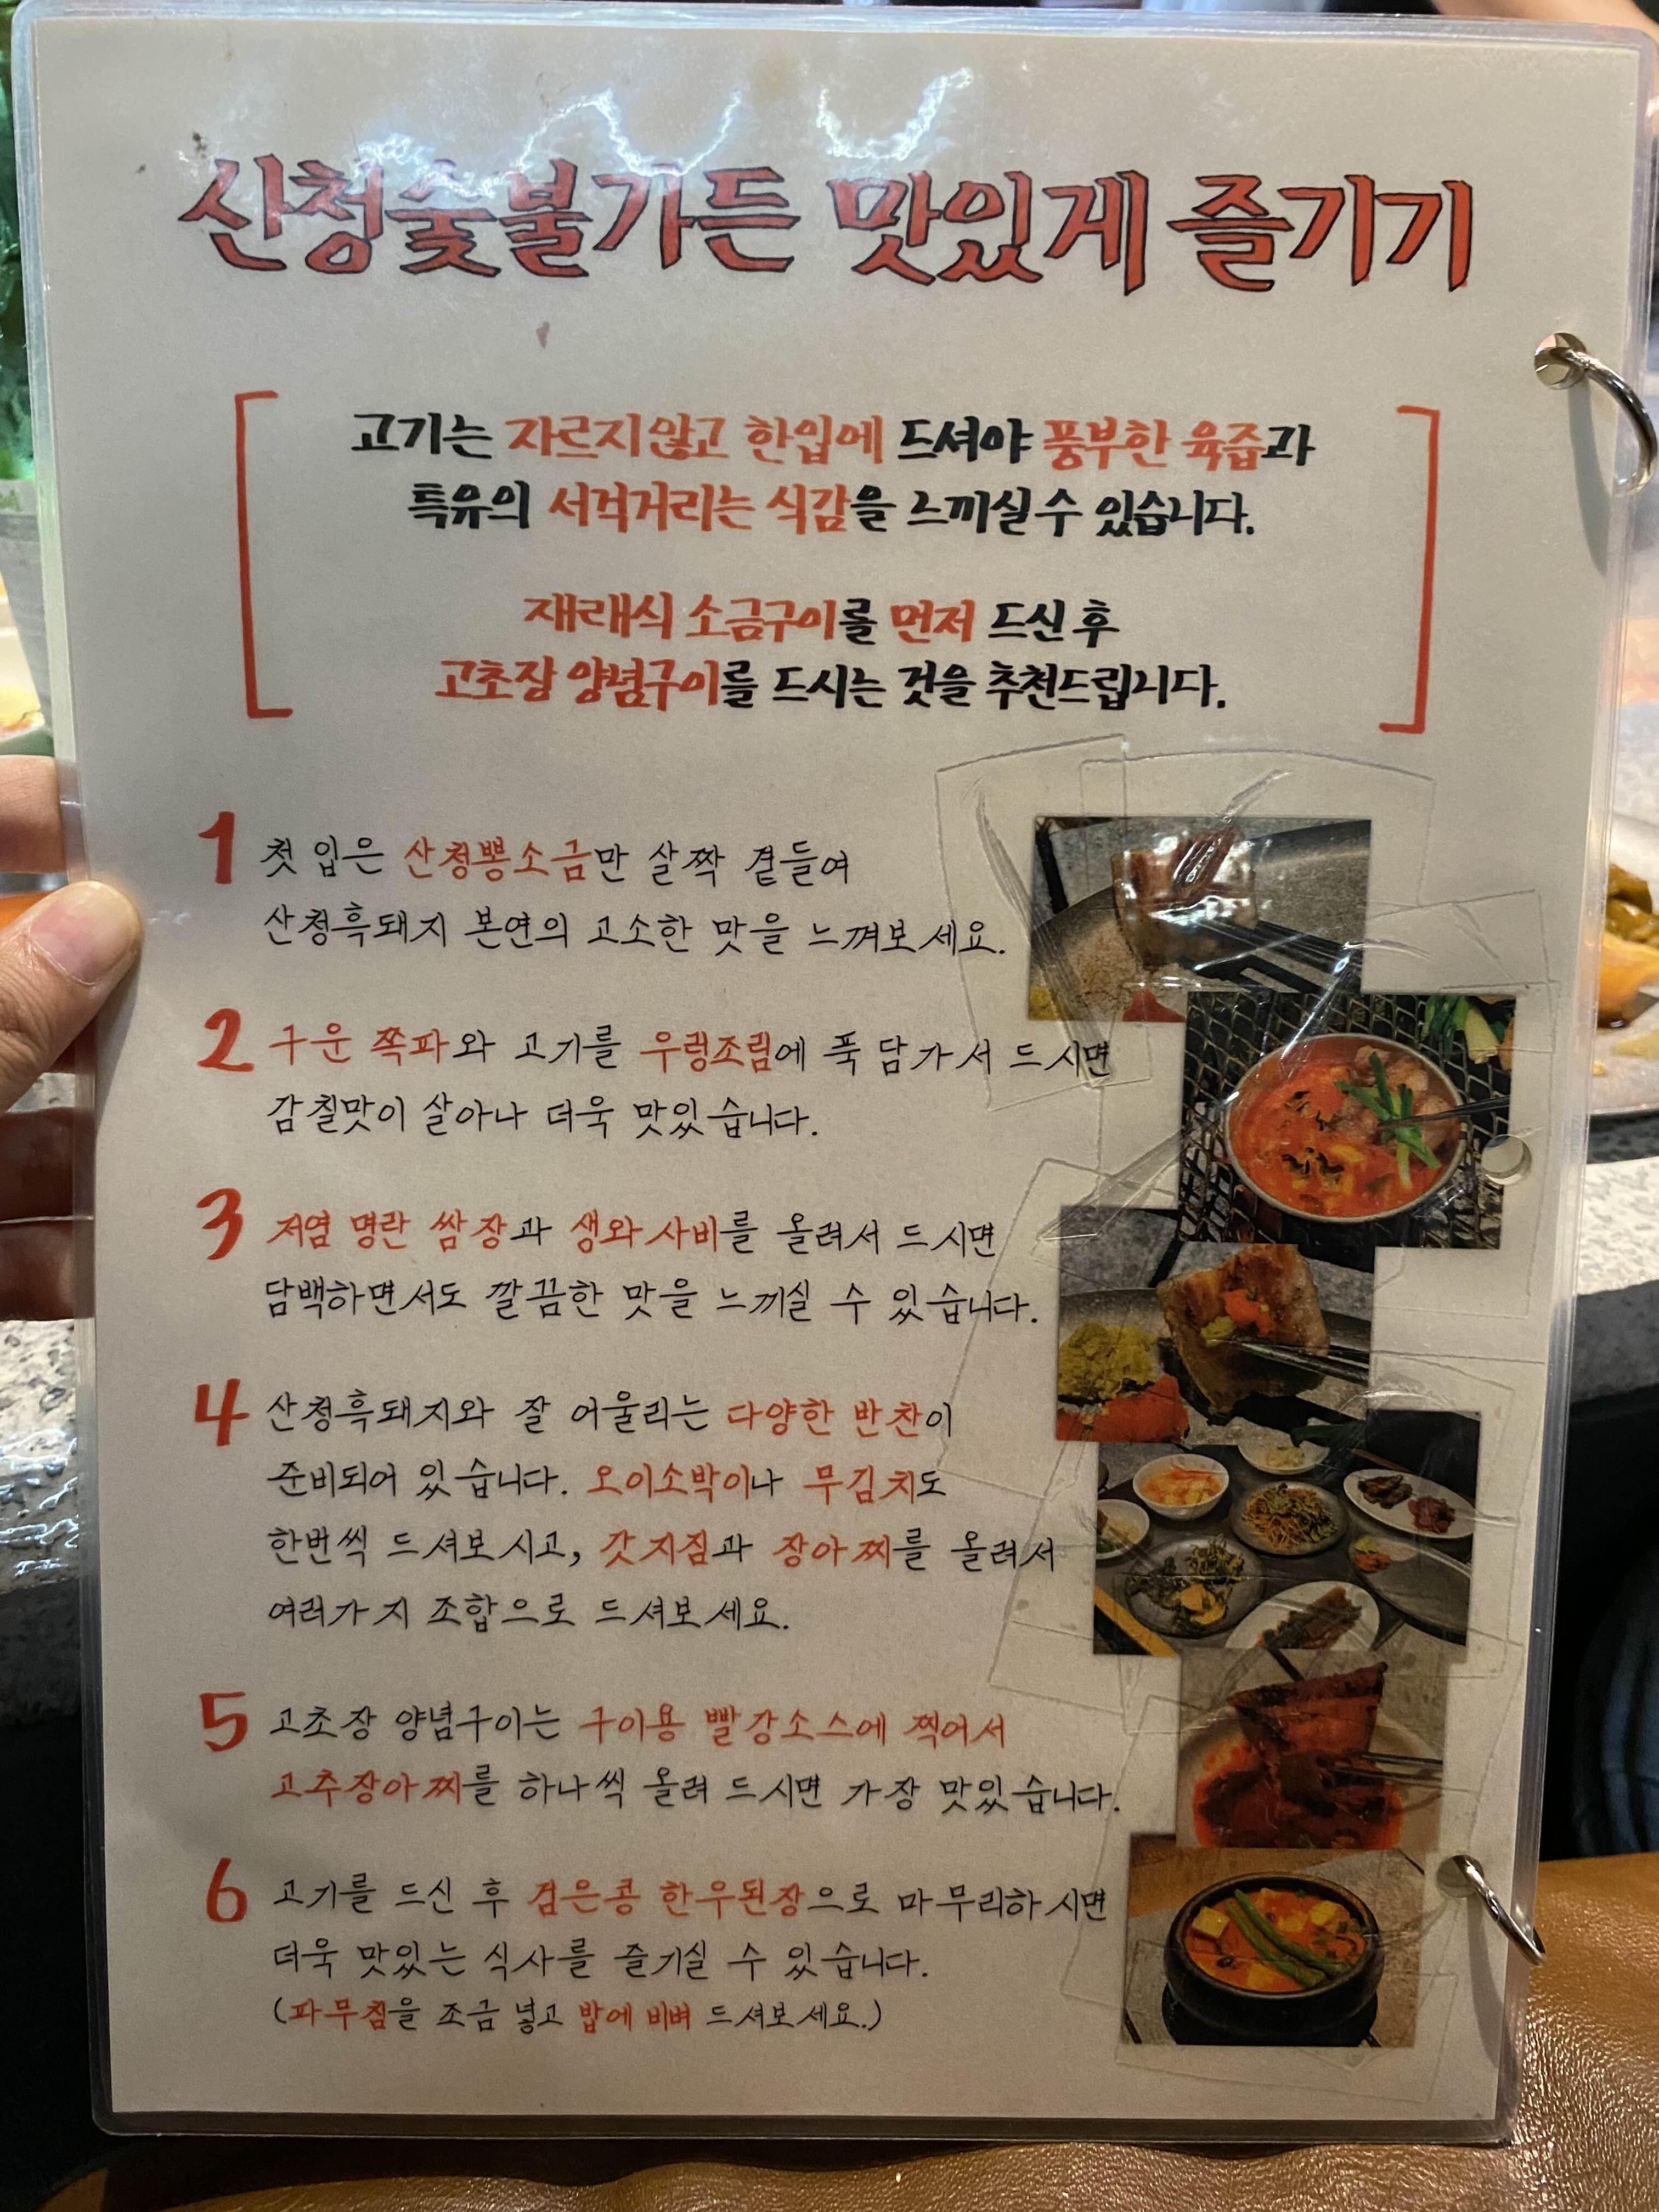 산청숯불가든 맛있게 즐기기
고기는 자르지않고 한입에 드셔야 풍부한 육즙과
특유의 서걱거리는 식감을 느끼실 수 있습니다.
재래식 소금구이를 먼저 드신 후
고초장 양념구이를 드시는 것을 추천드립니다.
1 첫 입은 산청뽕소금만 살짝 곁들여
산청흑돼지 본연의 고소한 맛을 느껴보세요.
2 구운 쪽파와 고기를 우렁조림에 푹 담가서 드시면
감칠맛이 살아나 더욱 맛있습니다.
3 저염 명란 쌈장과 생와사비를 올려서 드시면
담백하면서도 깔끔한 맛을 느끼실 수 있습니다.
4 산청흑돼지와 잘 어울리는 다양한 반찬이
준비되어 있습니다. 오이소박이나 무김치도
한번씩 드셔보시고, 갓지짐과 장아찌를 올려서
여러가지 조합으로 드셔보세요.
5 고초장 양념구이는 구이용 빨강소스에 찍어서
고추장아찌를 하나씩 올려 드시면 가장 맛있습니다.
6 고기를 드신 후 검은콩 한우된장으로 마무리하시면
더욱 맛있는 식사를 즐기실 수 있습니다.
(파무침을 조금 넣고 밥에 비벼 드셔보세요.)